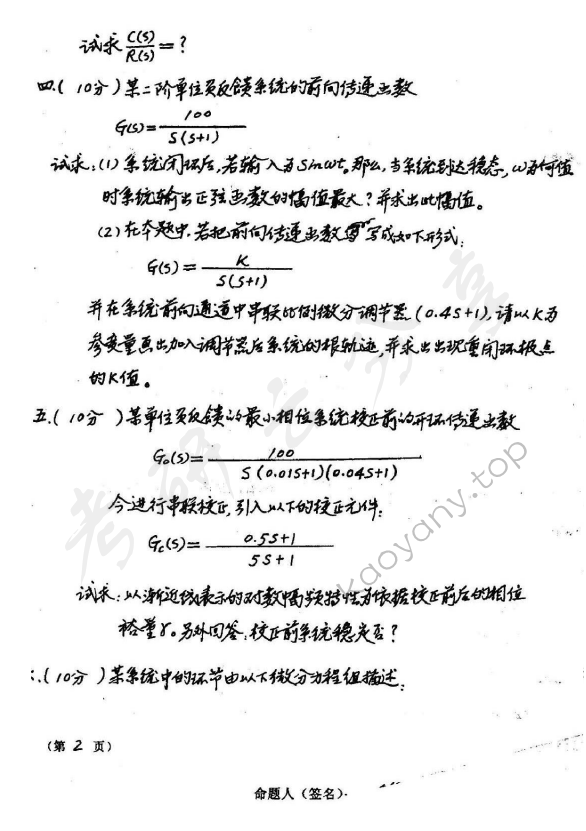 试求 C(S)/R(S) = ?
四.( 10分 ) 某二阶单位负反馈系统的前向传递函数
G(s)= 100 / S(S+1)
试求:(1) 系统闭环后,若输入为Sinωt,那么,当系统到达稳态,ω为何值
时系统输出正弦函数的幅值最大?并求出此幅值。
(2)在本题中,若把前向传递函数 写成如下形式:
G(S) = K / S(S+1)
并在系统前向通道中串联比例微分调节器 (0.4S+1), 请以K为
参变量画出加入调节器后系统的根轨迹,并求出出现重闭环极点
的K值。
五.( 10分 ) 某单位负反馈的最小相位系统校正前的开环传递函数
G₀(S)= 100 / S(0.01S+1)(0.04S+1)
今进行串联校正,引入以下的校正元件:
Gc(S) = 0.5S+1 / 5S+1
试求:以渐近线表示的对数幅频特性为依据校正前后的相位
裕量γ。另外回答:校正前系统稳定否?
.(10分 ) 某系统中的环节由以下微分方程组描述:
考研云分享
kaoyany.top
(第 2 页)
命题人(签名).